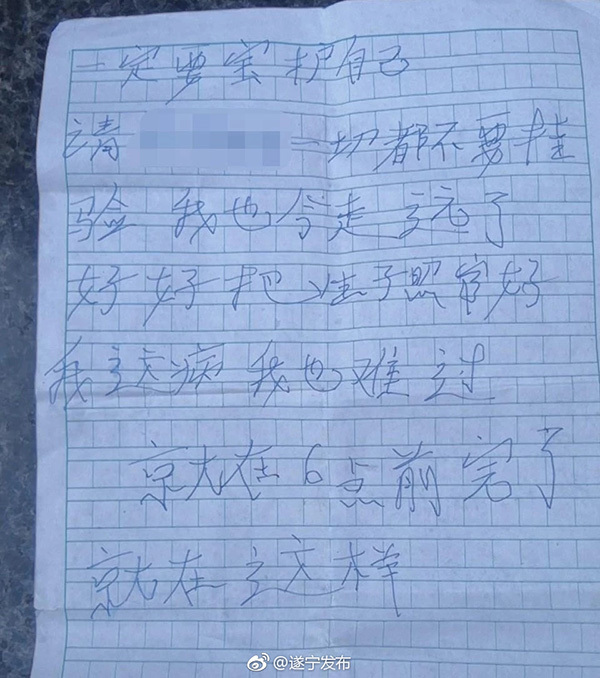 一定要宝护自己
请 一切都不要挂
验 我也今走远了
好好把娃子照官好
我这病我也难过
京尤在6点前完了
就在这样
@遂宁发布